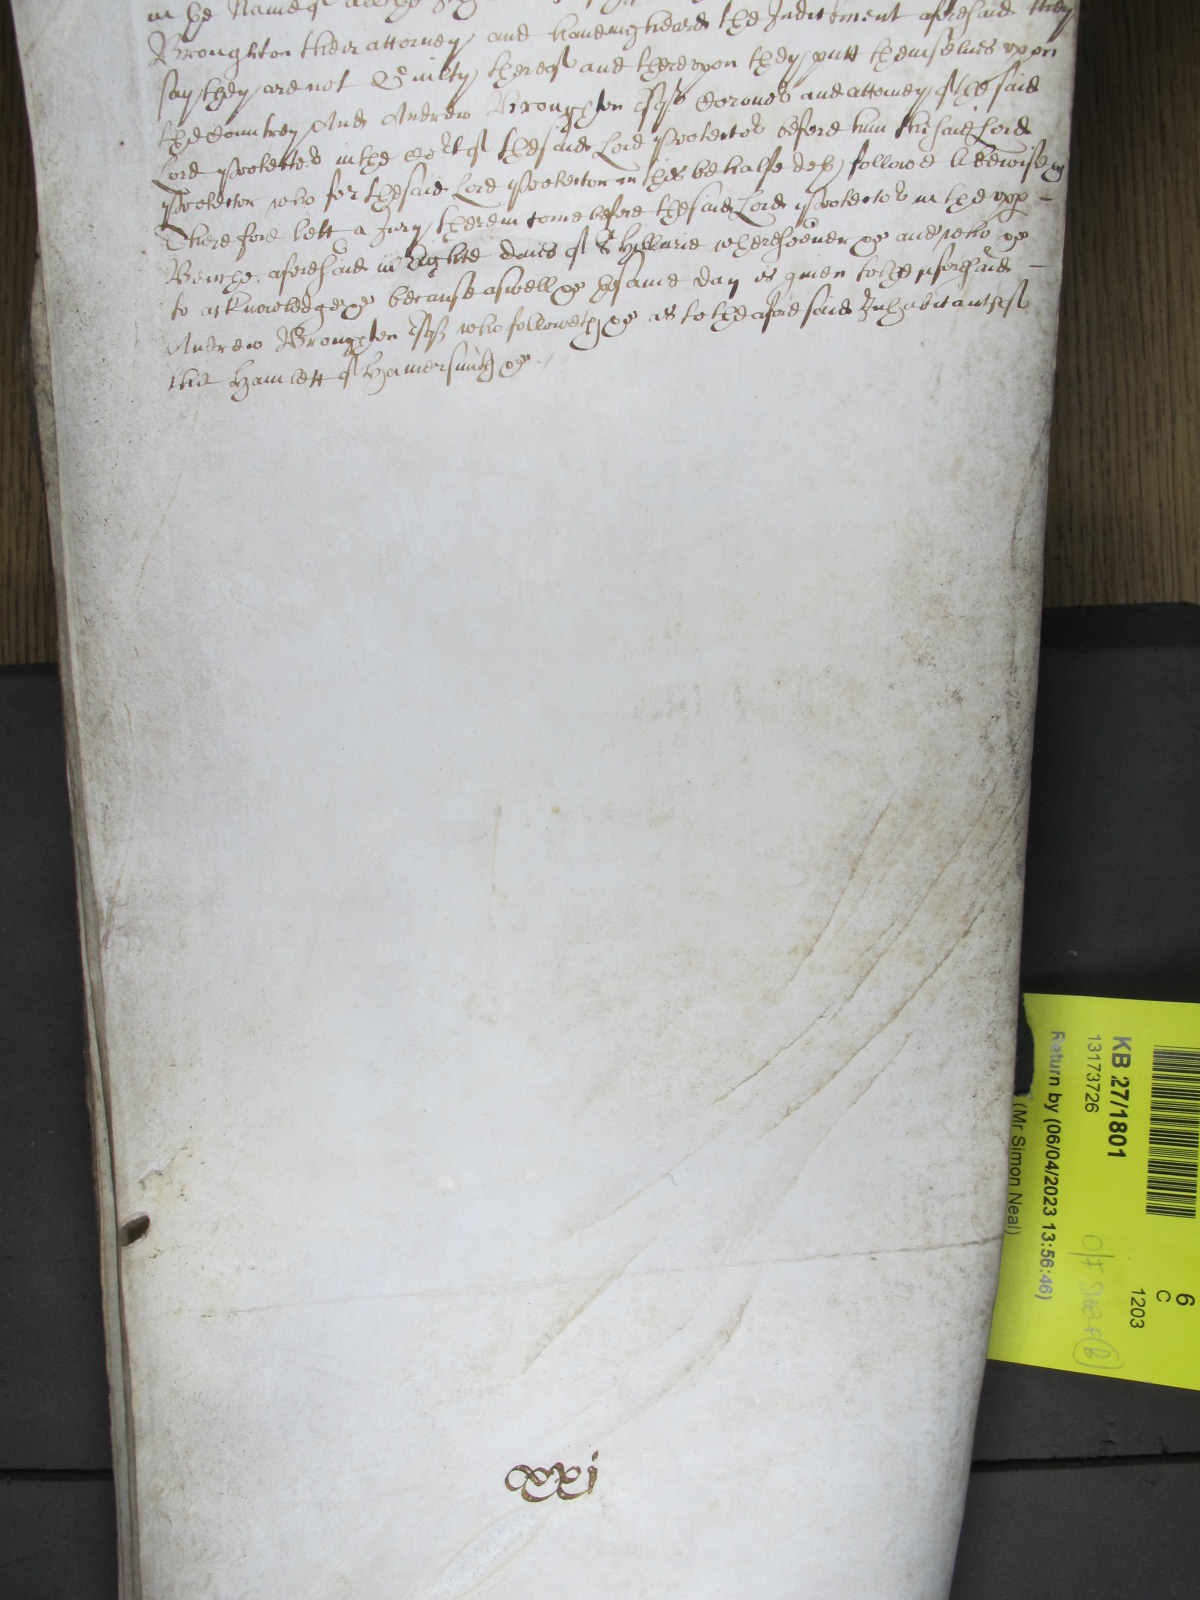 in the Name of all the
Broughton their attorney and haveing heard the Indictment aforesaid they
say they are not Guilty thereof and thereupon they putt themselves upon
the Countrey And Andrew Broughton Esqr Coroner and attorney of the said
Lord Protector in the Court of the said Lord Protector before him the said Lord
Protector who for the said Lord Protector in this behalfe doth follow likewise &c
Therefore lett a Jury therein come before the said Lord Protector in the upp
Bench aforesaid in Eighte daies of St Hillarie wheresoever &c and who &c
to acknowledge &c because aswell &c The same day is given to the aforesaid
Andrew Broughton Esqr who followeth &c as to the aforesaid Inhabitants of
the Hamlett of Hamersmith &c
xxj
KB 27/1801
13173726
Return by (06/04/2023 13:56:46)
(Mr Simon Neal)
6
C
1203